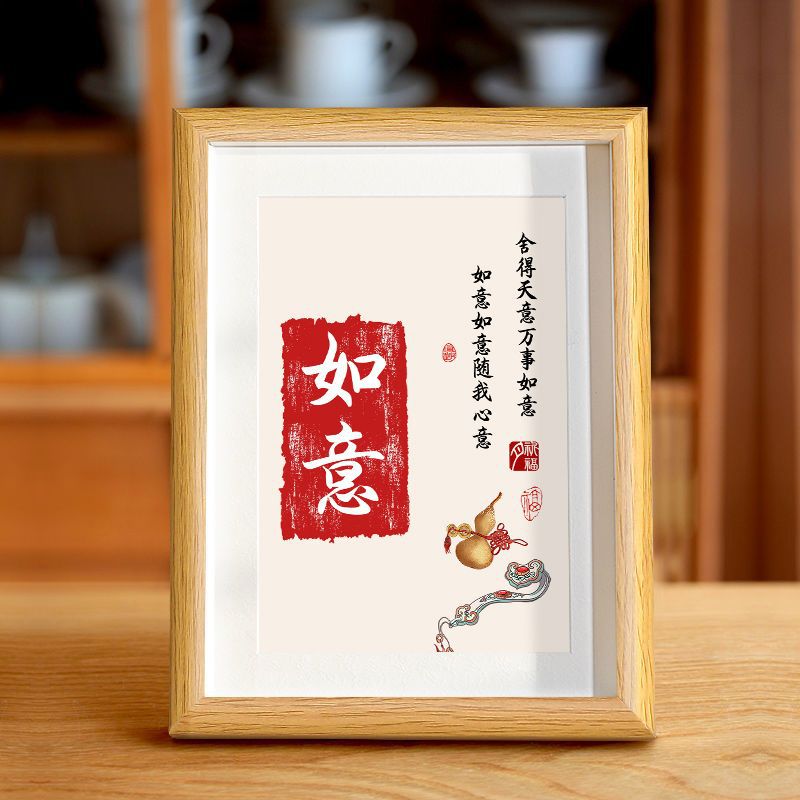 舍得天意万事如意
如意如意随我心意
如意
祈福